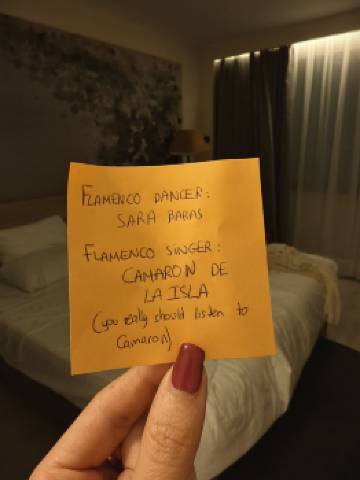 FLAMENCO DANCER:
SARA BARAS
FLAMENCO SINGER:
CAMARON DE
LA ISLA
(you really should listen to
Camaron)